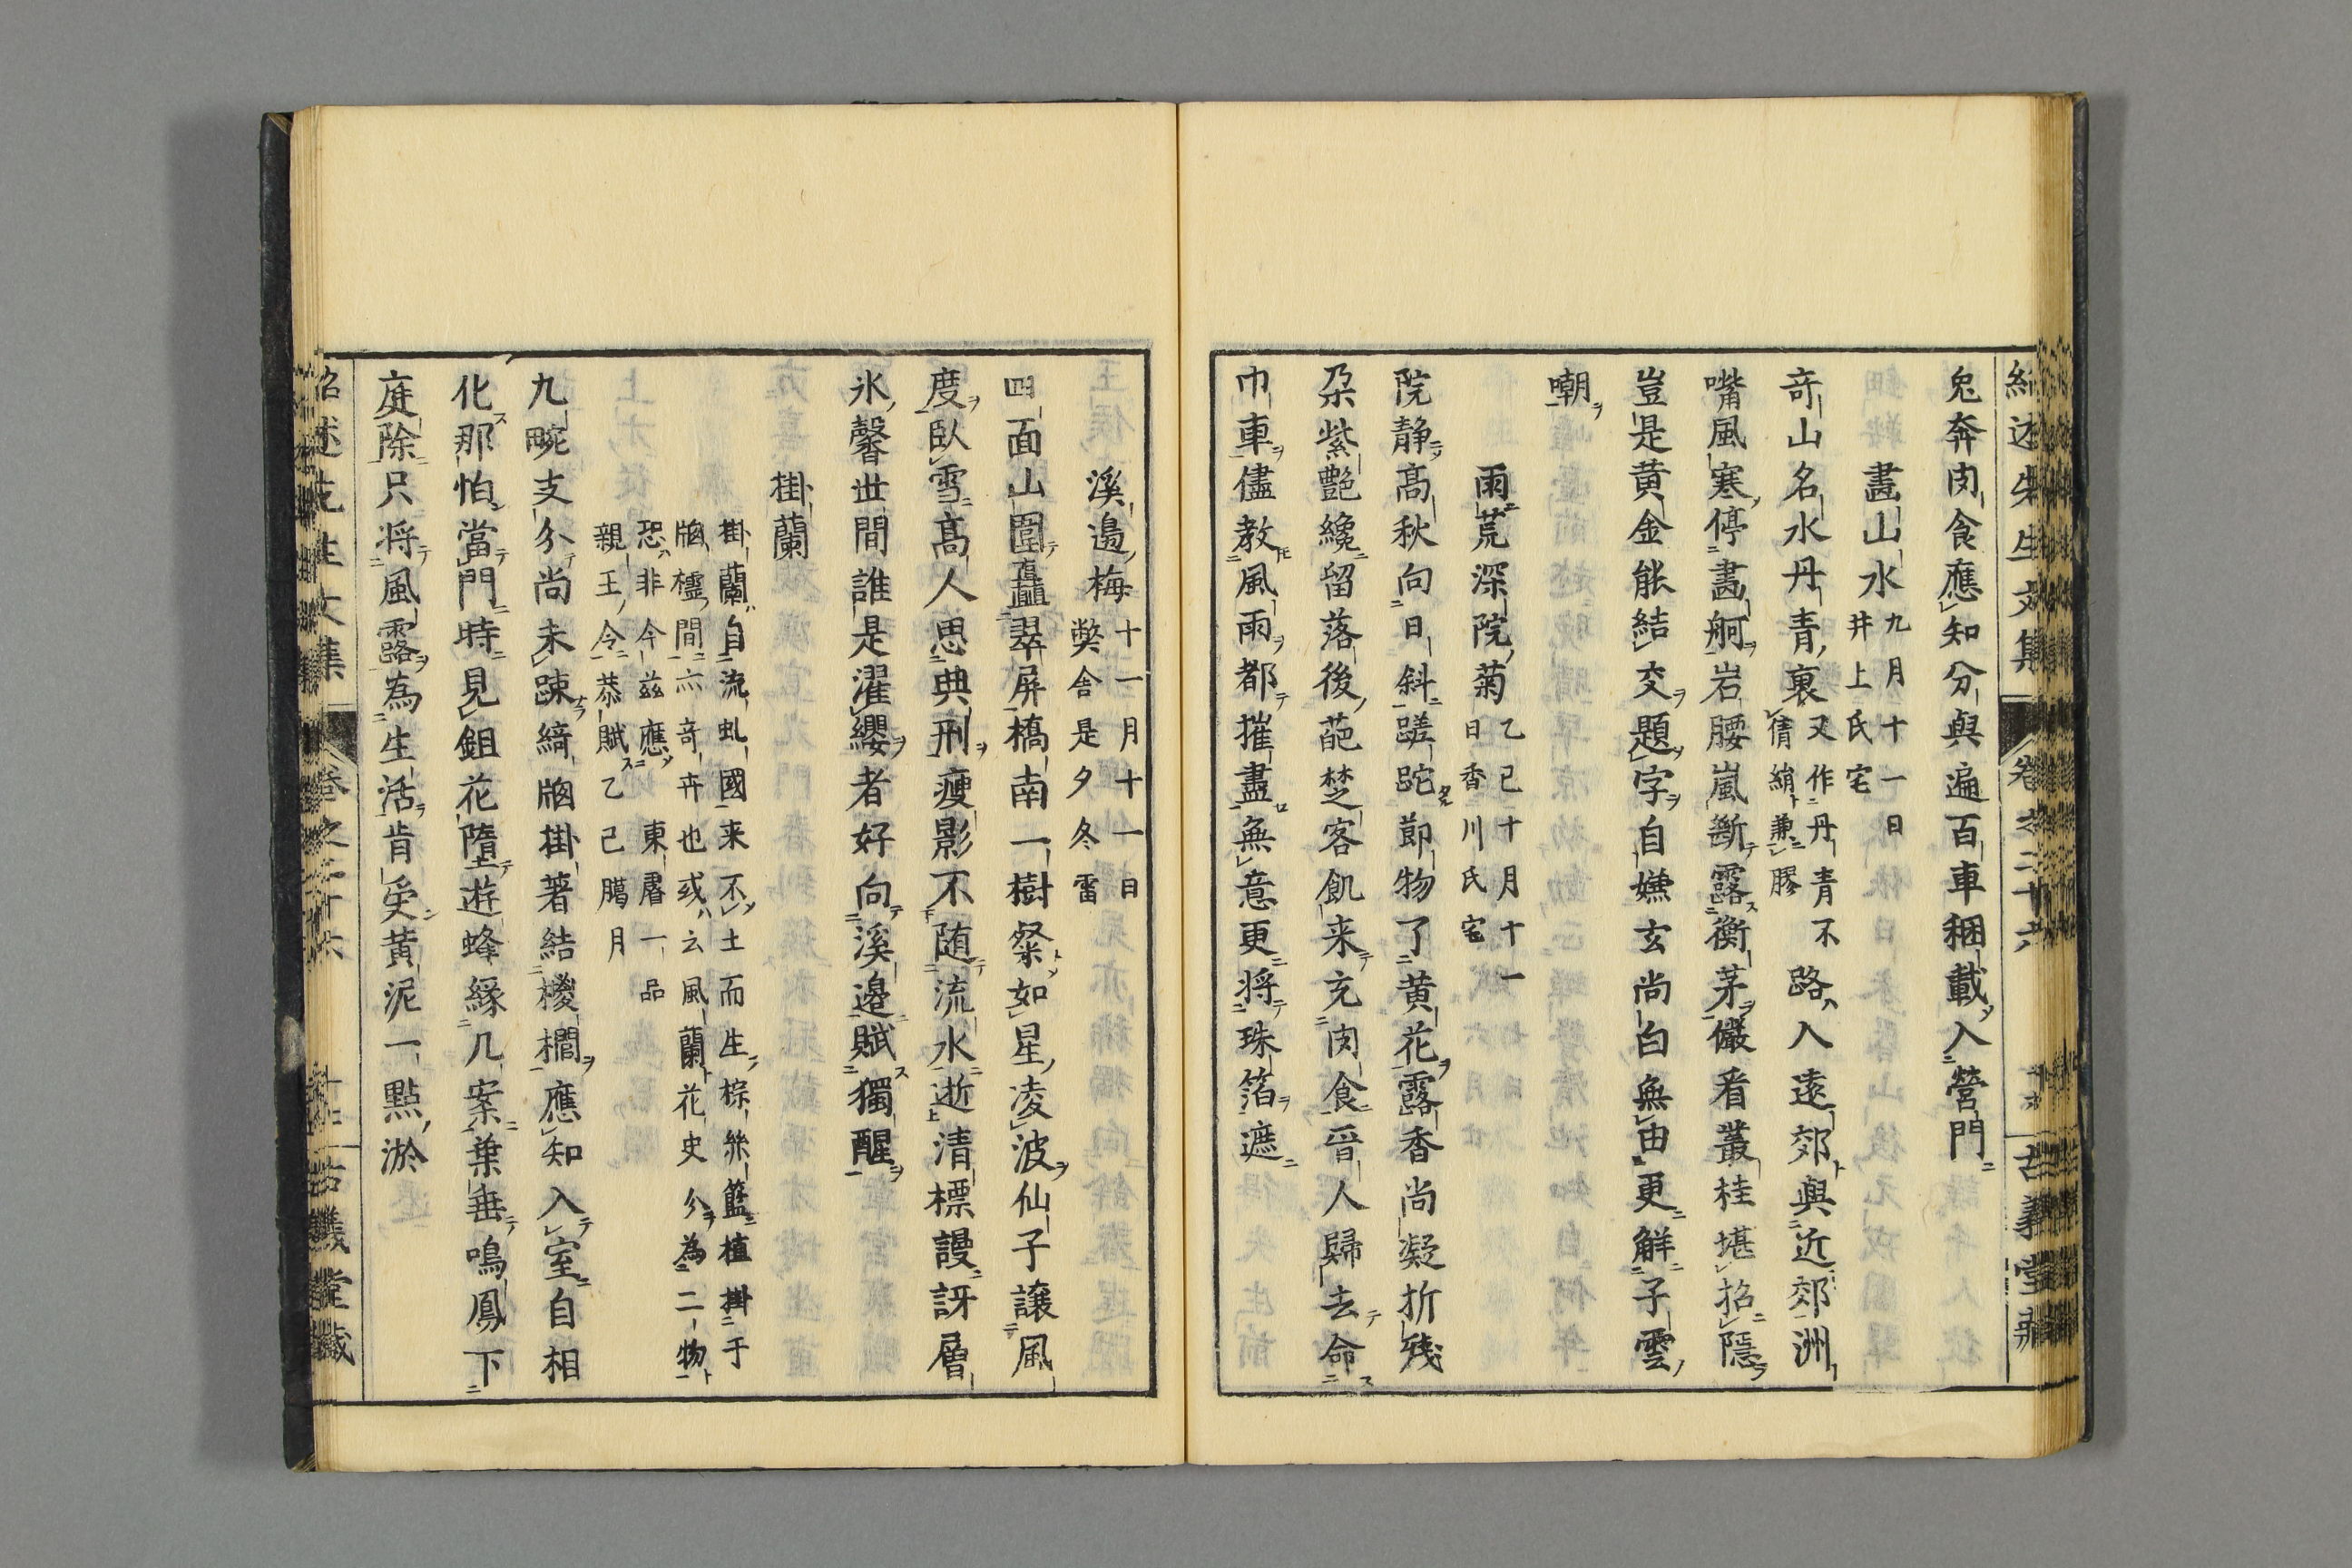 兔奔肉食應知分與遍百車稇載入營門
畫山水 九月十一日
井上氏宅
奇山名水丹青裏 又作丹青不
倩綃兼膠 路入遠郊與近郊洲
嘴風寒停畵舸岩腰嵐斷露衡茅儼看叢桂堪招隱
豈是黄金能結交題字自嫌玄尚白無由更解子雲
嘲
雨荒深院菊 乙巳十月十一
日香川氏宅
院静高秋向日斜蹉跎節物了黄花露香尚凝折殘
朶紫艷纔留落後葩楚客飢来充肉食晉人歸去命
巾車儘教風雨都摧盡無意更將珠箔遮
溪邉梅 十一月十一日
獘舎是夕冬雷
四面山圍矗翠屏橋南一樹粲如星凌波仙子讓風
度臥雪高人思典刑瘦影不随流水逝清標謾訝層
氷馨世間誰是濯纓者好向溪邉賦獨醒
掛蘭
掛蘭自流虬國来不土而生棕絲籃植掛于
牕櫺間亦奇卉也或云風蘭花史分為二物
恐非今茲應東曆一品
親王令恭賦乙巳臈月
九畹支分尚未踈綺牕掛著結櫻櫚應知入室自相
化那怕當門時見鉏花墮遊蜂縁几案葉垂鳴鳳下
庭除只将風露為生活肯受黄泥一點淤
紹述先生文集
卷之二十六
古義堂藏